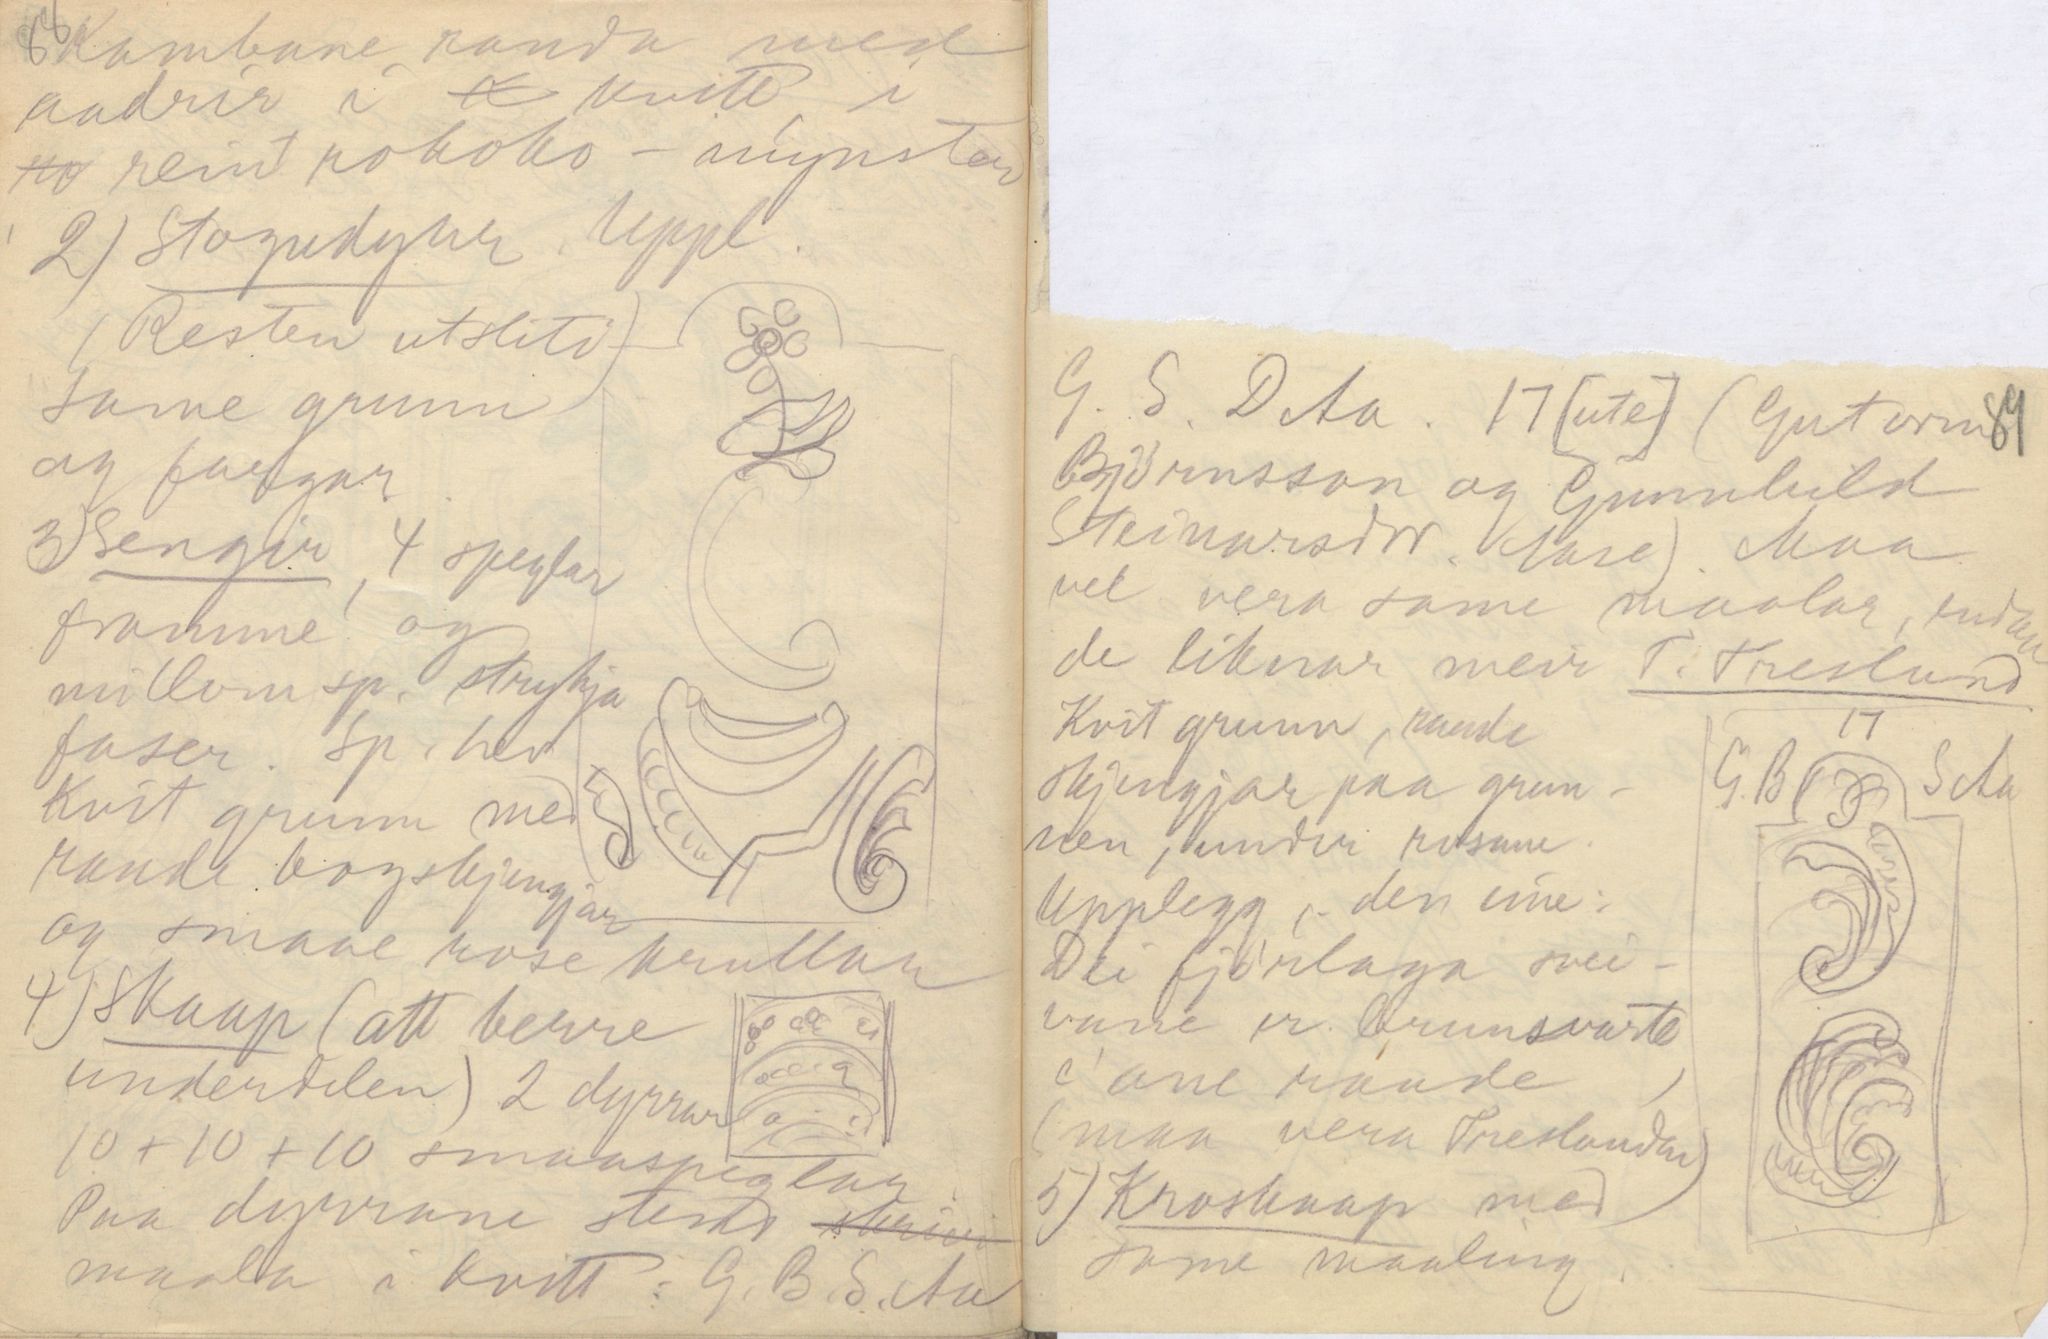 88
Kambane rauda med
audrir i kvitt i
reint rokoko - mynster
2) Stogudyrer. Uppl.
(Resten utsliti)
same grunn
og fargar.
3) Sengir, 4 speglar
framme og
millom sp. strykja
faser. Sp. hev
Kvit grunn med
raude bogskjengjar
og smaae rosekrullar
4) Skaap (att berre
underdelen) 2 dyrrar
10 + 10 + 10 smaaspeglar.
Paa dyrrane stend skrivi
maala i kvitt: G. B. S. Aa
89
G. S. D. Aa. 17 [ute] (Gutorm
Björnsson og Gunnhild
Steinarsdtr. Aase). Maa
vel vera same maalar, endaa
de liknar meir T. Treslund
Kvit grunn, raude
skjengjar paa grun-
nen, under rosane.
Upplegg, den eine:
Dei fjörlaga svei-
vane er brunsvarte
raude
(maa vera Treslandar)
5) Kroskaap med
same maaling.
17
G. B. S Aa